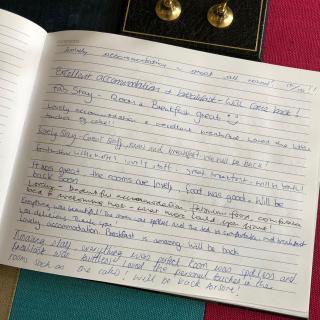 Lovely accommodation - great all round!
Excellent accommodation & breakfast - Will come back!
Fab Stay - Room & Breakfast great
Lovely accommodation & excellent breakfast loved the little
touches of
Lovely Stay - Great Staff, room and breakfast. We will be back!
lovely staff. great breakfast will be back!
It was great, the rooms are lovely, food was good. Will be
back soon
Lovely - beautiful accommodation, food, comfortable
bed & welcoming host - what more could you hope for!
Everything was beautiful! The room was spotless and the bed so comfortable, and breakfast
was delicious. Thank you
Lovely accommodation. Breakfast is amazing. Will be back
Amazing stay, everything was perfect. Room was spotless and
breakfast was Loved the personal touches in the
room such as the cake! Will be back for sure!